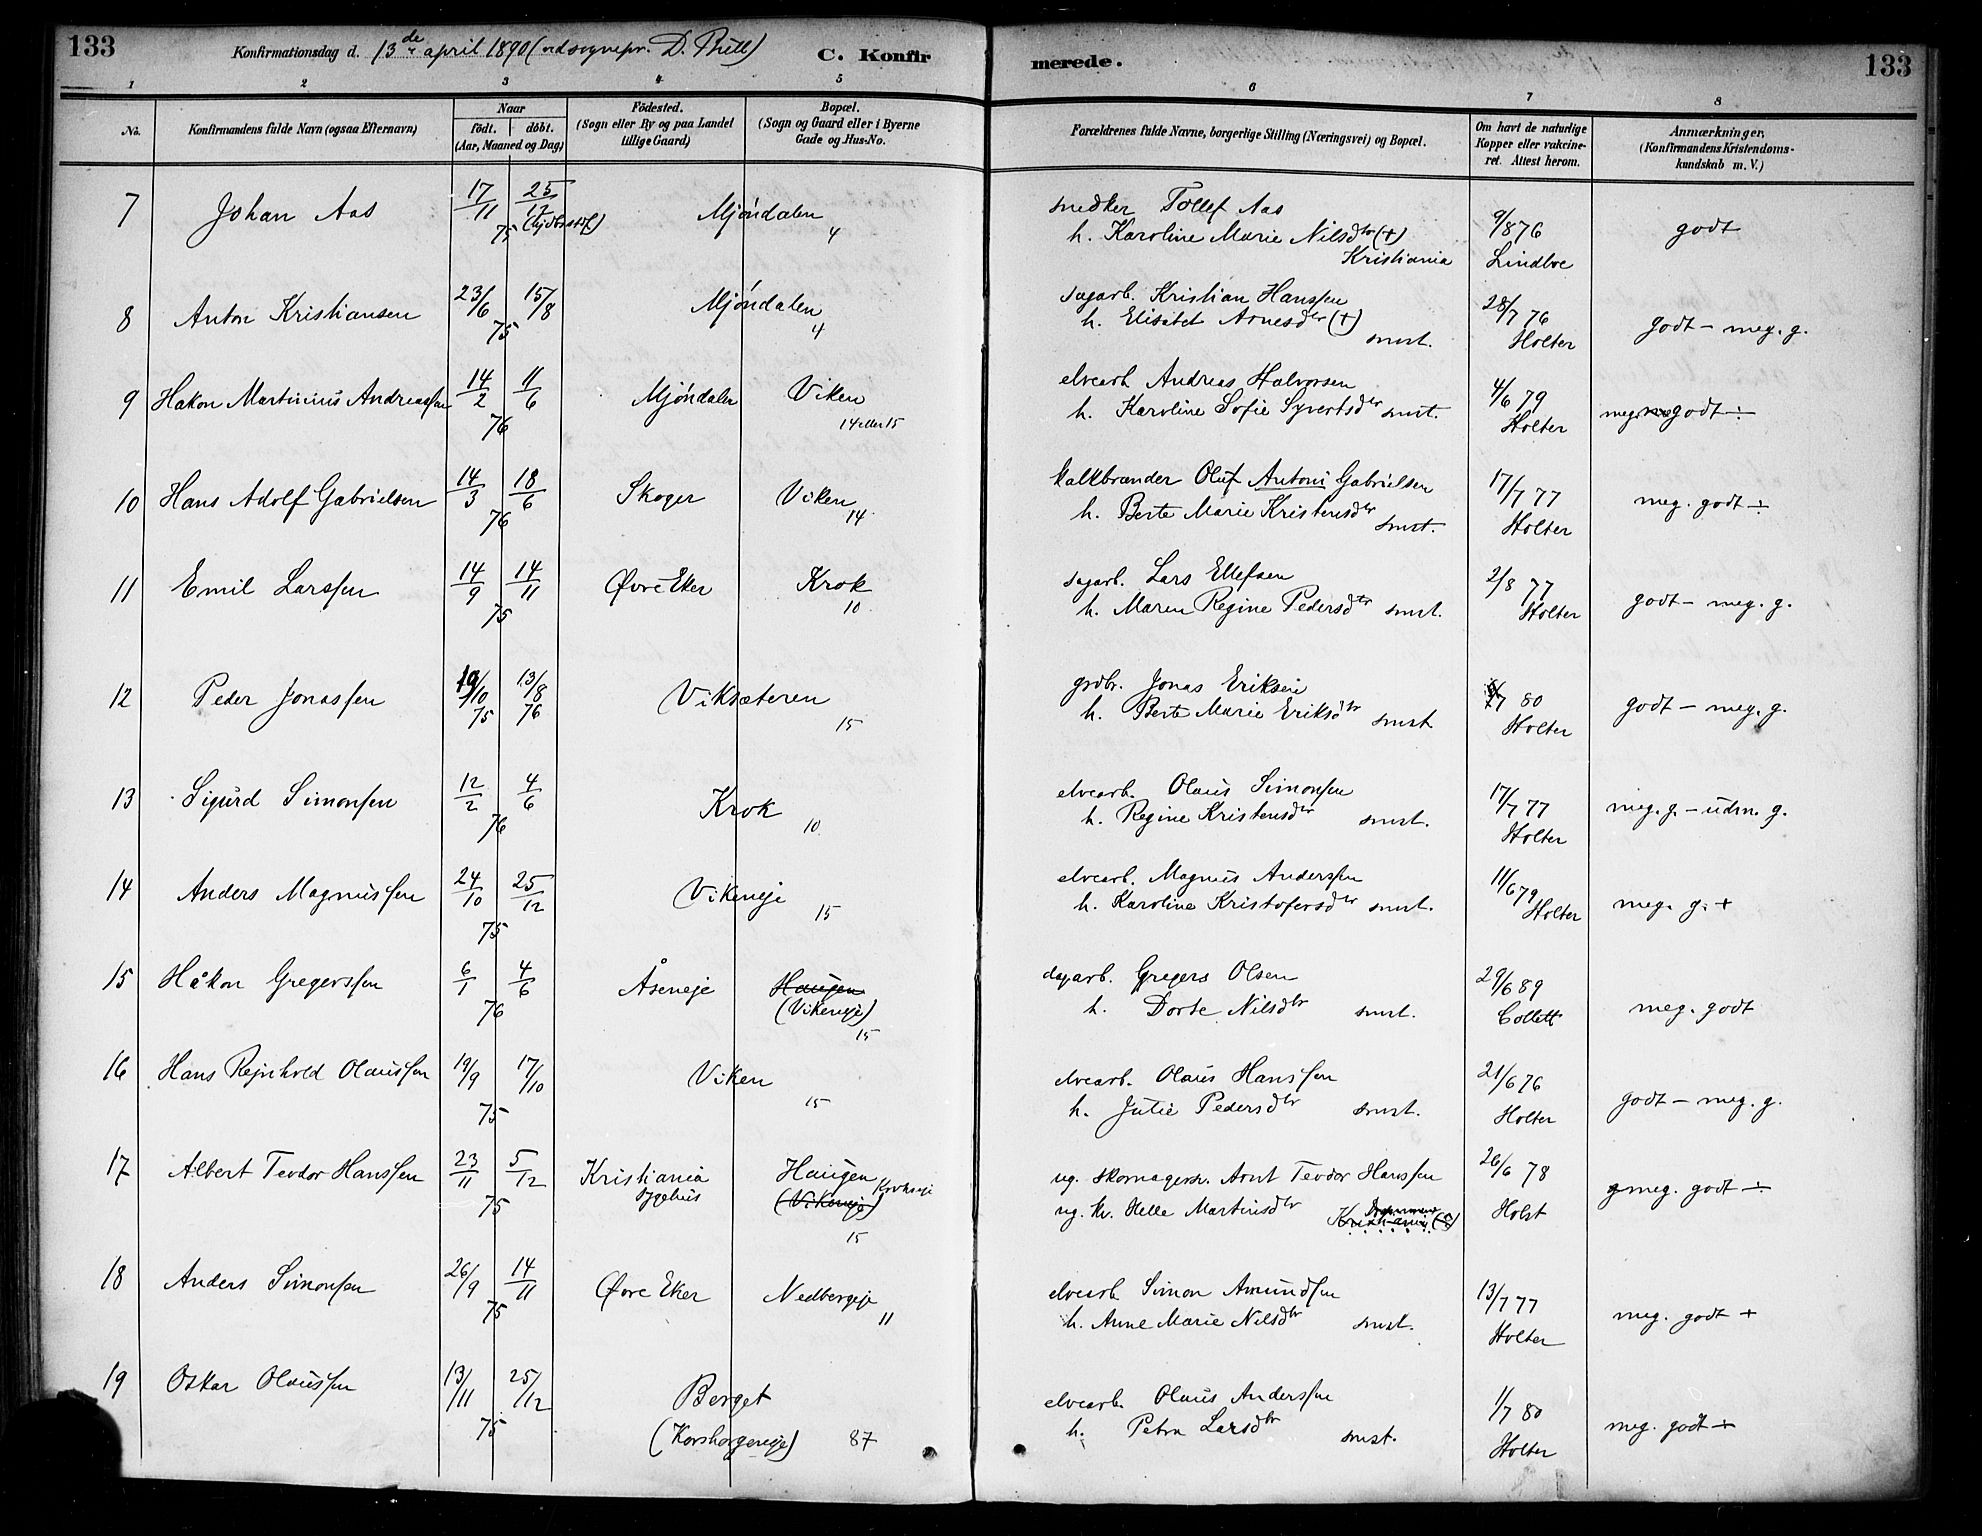 133
Konfirmationsdag d. 13de april 1890 (ved sognepr. D. Thrap) C. Konfirmerede. 133
1 2 3 4 5 6 7 8
No. Konfirmandens fulde Navn (ogsaa Efternavn) Naar födt. döbt. (Aar, Maaned og Dag) Födested. (Sogn eller By og paa Landet tillige Gaard) Bopæl. (Sogn og Gaard eller i Byerne Gade og Hus-No. Forældrenes fulde Navne, borgerlige Stilling (Næringsvei) og Bopæl. Om havt de naturlige Kopper eller vakcineret. Attest herom. Anmærkninger. (Konfirmandens Kristendomskundskab m. V.)
7 Johan Aas 17/11 25/12 Mjöndalen snedker Tollef Aas 9/8 76 godt
75 (hjdbs stdf.) 4 h. Karoline Marie Nilsdtr (+)
Kristiania Lindboe
8 Anton Kristiansen 23/6 15/8 Mjöndalen sagarb. Kristian Hanssen 28/7 76 godt – meg. g.
75 4 h. Elisabet Arnesdtr (+) smst. Holter
9 Hakon Martinius Andreassen 14/2 11/6 Mjöndalen Viken elvearb. Andreas Halvorsen 4/6 79 meg godt ÷
76 14 eller 15 h. Karoline Sofie Syvertsdtr smst. Holter
10 Hans Adolf Gabrielsen 14/3 18/6 Skoger Viken kalkbrænder Oluf Antoni Gabrielsen 17/7 77 meg. godt ÷
76 14 h. Berte Marie Kristensdtr smst. Holter
11 Emil Larssen 14/9 14/11 Øvre Eker Krok sagarb. Lars Ellefsen 2/8 77 godt – meg. g.
75 10 h. Maren Regine Pedersdtr smst. Holter
12 Peder Jonassen 19/10 13/8 Viksæteren grdbr. Jonas Eriksen 80 godt – meg. g.
75 76 15 h. Berte Marie Eriksdtr smst Holter
13 Sigurd Simonsen 12/2 4/6 Krok elvearb. Olaus Simonsen 17/7 77 meg. g. – udm. g.
76 10 h. Regine Kristensdtr smst. Holter
14 Anders Magnussen 24/10 25/12 Vikeneje elvearb. Magnus Anderssen 11/6 79 meg. g. +
75 15 h. Karoline Kristofersdtr smst. Holter
15 Håkon Gregerssen 6/1 4/6 Åseneje Haugen dagarb. Gregers Olsen 29/6 89 meg. godt
76 (Vikeneje) 15 h. Dorte Nilsdtr smst. Collett
16 Hans Rejnhold Olaussen 19/9 17/10 Viken elvearb. Olaus Hanssen 21/6 76 godt – meg. g.
75 15 h. Julie Pedersdtr smst. Holter
17 Albert Teodor Hanssen 23/11 5/12 Kristiania sygehus Haugen Krokseje ug. skomagersv. Arnt Teodor Hanssen 26/6 78 meg. godt ÷
75 (Vikeneje) 15 ug. kv. Helle Martinsdtr Kristiania Holst
18 Anders Simonsen 26/9 14/11 Øvre Eker Nedbergeje elvearb. Simon Amundsen 13/7 77 meg. godt +
75 11 h. Anne Marie Nilsdtr smst. Holter
19 Oskar Olaussen 13/11 25/12 Berget elvearb. Olaus Anderssen 1/7 80 meg. godt ÷
75 (Korsbergeneje) 87 h. Petra Larsdtr smst. Holter